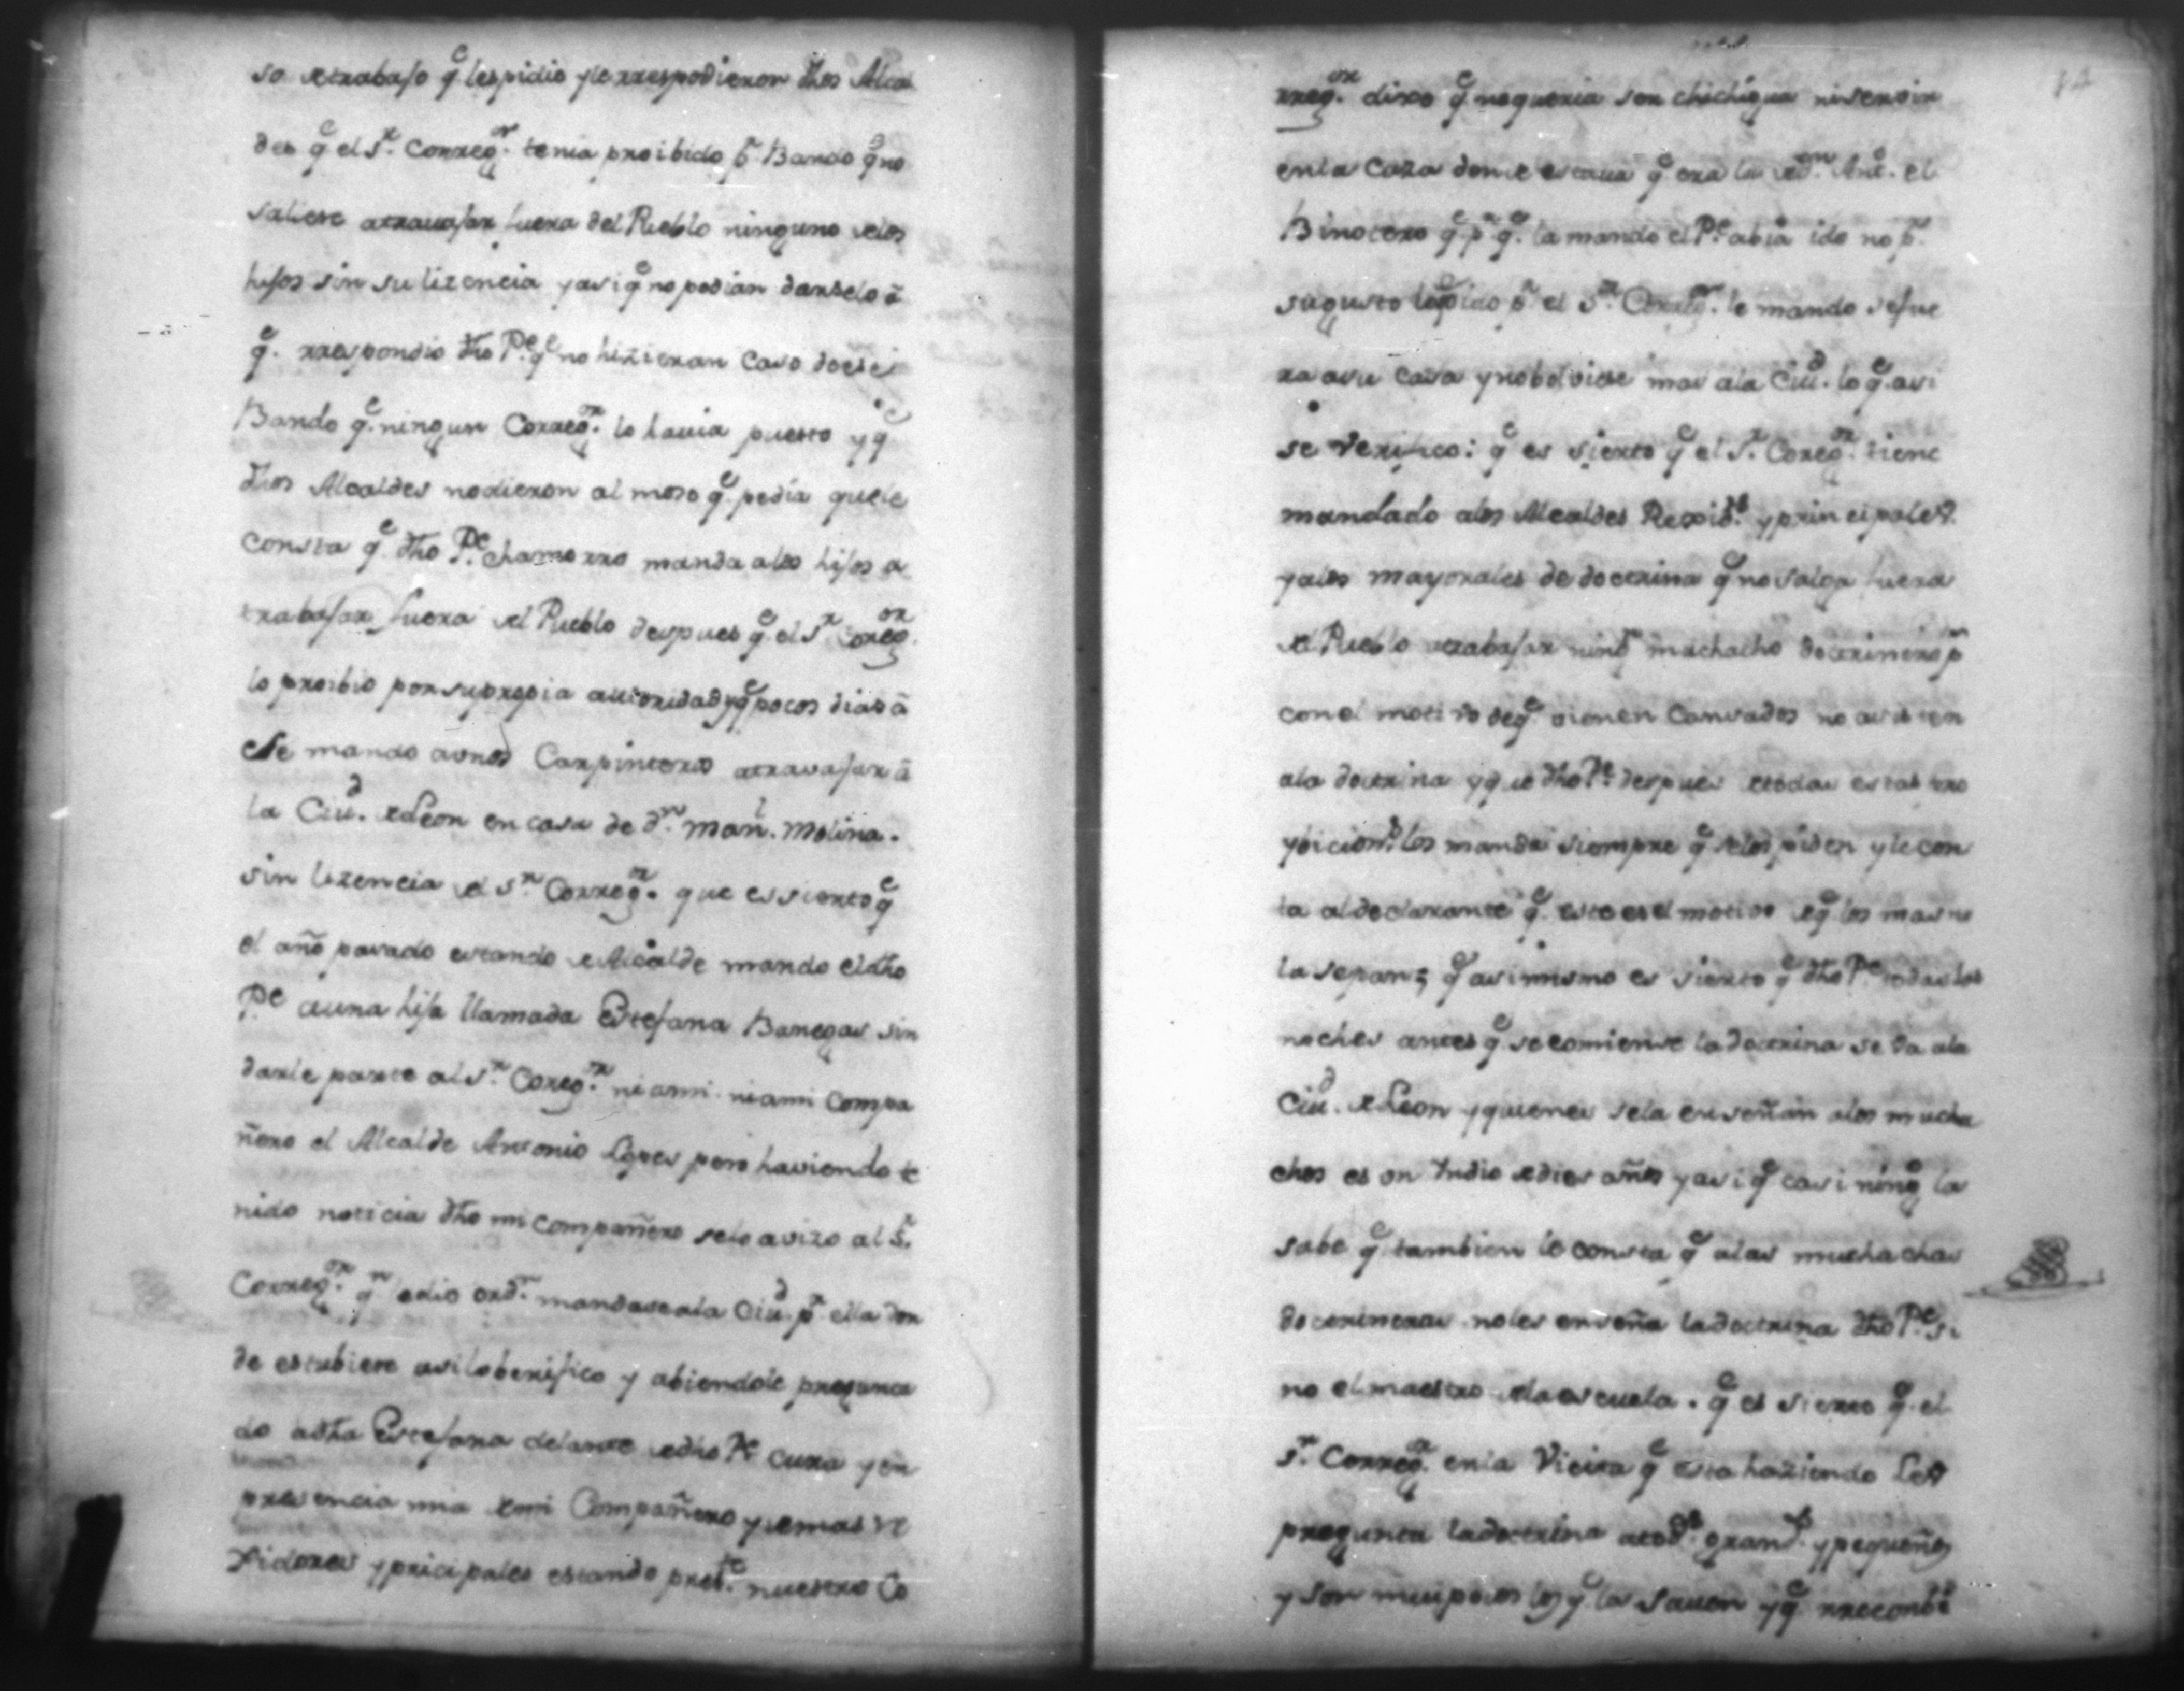 so de trabajo q.e les pidio y le rrespodieron dhos Alcal
des q.e el S.r Correg.or tenia proibido p.r Bando q.e no
saliese a trauajar fuera del Pueblo ninguno de los
hijos sin su lizencia y asi q.e no podian darselo â
q.e rrespondio dho P.e q.e no hizieran caso de ese
Bando q.e ningun Correg.or lo hauia puesto y q.e
dhos Alcaldes no dieron al moso q.e pedia que le
consta q.e dho P.e chamorro manda a los hijos a
trabajar fuera del Pueblo despues q.e el S.r Correg.or
lo proibio por su propia autoridad y q.e pocos dias â
este mando a unos Carpinteros a travajar â
la Ciu.d de Leon en casa de d.n Man.l Molina.
sin lizencia del S.r Correg.or que es sierto q.e
el año pasado estando de Alcalde mando el dho
P.e a una hija llamada Estefana Banegas sin
darle parte al S.r Coreg.or ni a mi ni a mi compa
ñero el Alcalde Antonio Lopes pero haviendo te
nido noticia dho mi compañero se lo avizo al S.r
Correg.or q.n le dio ord.n mandase a la Ciu.d p.r ella don
de estubiere asi lo berifico y abiendole pregunta
do a dha Estefana delante de dho P.e Cura y en
presencia mia de mi Compañero y demas re
xidores y pricipales estando pres.te nuestro Co
rreg.or dixo q.e no queria ser chichigua ni servir
en la Casa donde estaua q.e era la de d.n Ant.o el
Binotero q.e p.r q.e la mando el P.e abia ido no p.r
su gusto le pido p.r el S.r Correg.or le mando se fue
ra a su casa y no bolviese mas a la Ciu.d lo q.e asi
se Verifico: q.e es sierto q.e el S.r Coreg.or tiene
mandado a los Alcaldes Rexid.s y principales
y a los mayorales de doctrina q.e no salga fuera
del Pueblo a trabajar ning.n muchacho doctrinero p.r
con el motivo de q.e vienen cansados no asisten
a la doctrina y que dho P.e despues de todas estas pro
ybicion.s los manda siempre q.e se los piden y le con
ta al declarante q.e este es el motivo de q.e los mas no
la sepan; q.e asimismo es sierto q.e dho P.e todas las
noches antes q.e se comiense la doctrina se va a la
Ciu.d de Leon y quenes se la enseñan a los mucha
chos es on Indio de dies años y asi q.e casi ning.o la
sabe q.e tambien le consta q.e a las muchachas
doctrineras no les enseña la doctrina dho P.e si
no el maestro de la escuela. q.e es sierto q.e el
S.r Correg.or en la Vicita q.e esta haziendo Les
pregunta la doctrina a tod.s grand.s y pequeños
y son mui pocos los q.e la sauen y q.e rreconbi